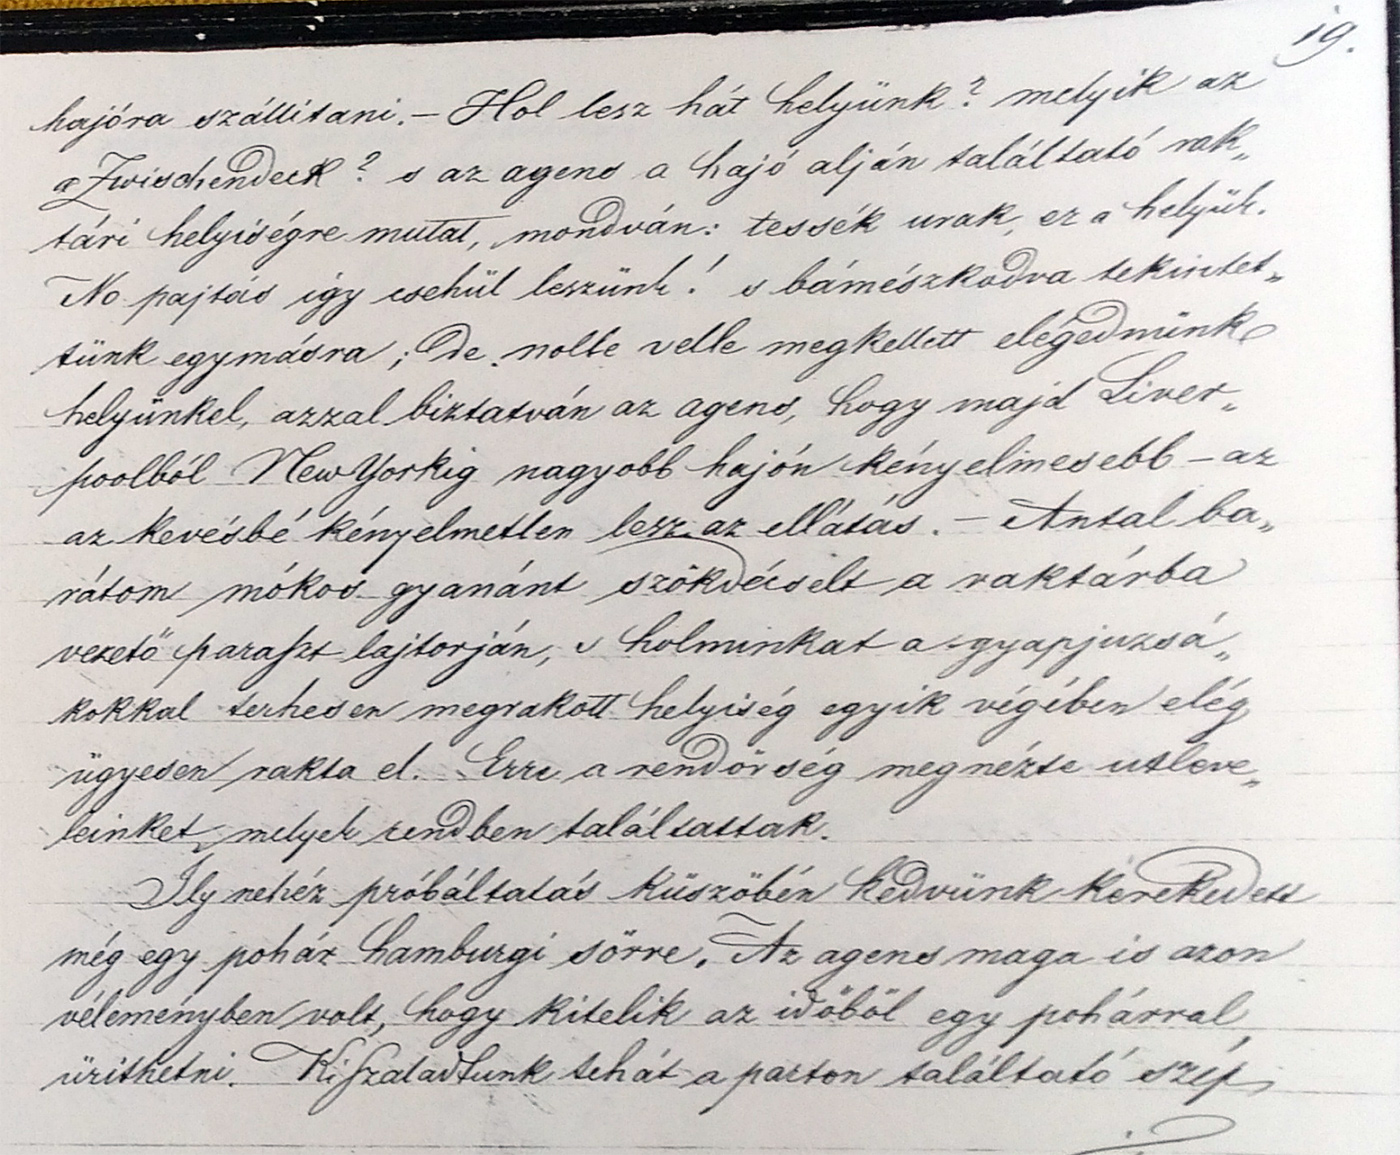 19.
hajóra szállitani. – Hol lesz hát helyünk? melyik az
a Zwischendeck? s az agens a hajó alján található rak„
tári helyiségre mutat, mondván: tessék urak, ez a helyük.
No pajtás igy csehül leszünk! s bámészkodva tekintet„
tünk egymásra; De nolle velle megkellett elégednünk
helyünkel, azzal biztatván az agens, hogy majd Liver„
poolból NewYorkig nagyobb hajón kényelmesebb – az
az kevésbé kényelmetlen lesz az ellátás. – Antal ba„
rátom mókos gyanánt szökdécselt a raktárba
vezető paraszt lajtorján, s holminkat a gyapjuzsá„
kokkal terhesen megrakott helyiség egyik végében elég
ügyesen rakta el. Erre a rendörség megnézte utleve„
leinket, melyek rendben találtattak.
Ily nehéz próbáltatás küszöbén kedvünk kerekedett
még egy pohár hamburgi sörre. Az agens maga is azon
véleményben volt, hogy kitelik az idöböl egy pohárral
üríthetni. Kiszaladtunk tehát a parton található szép